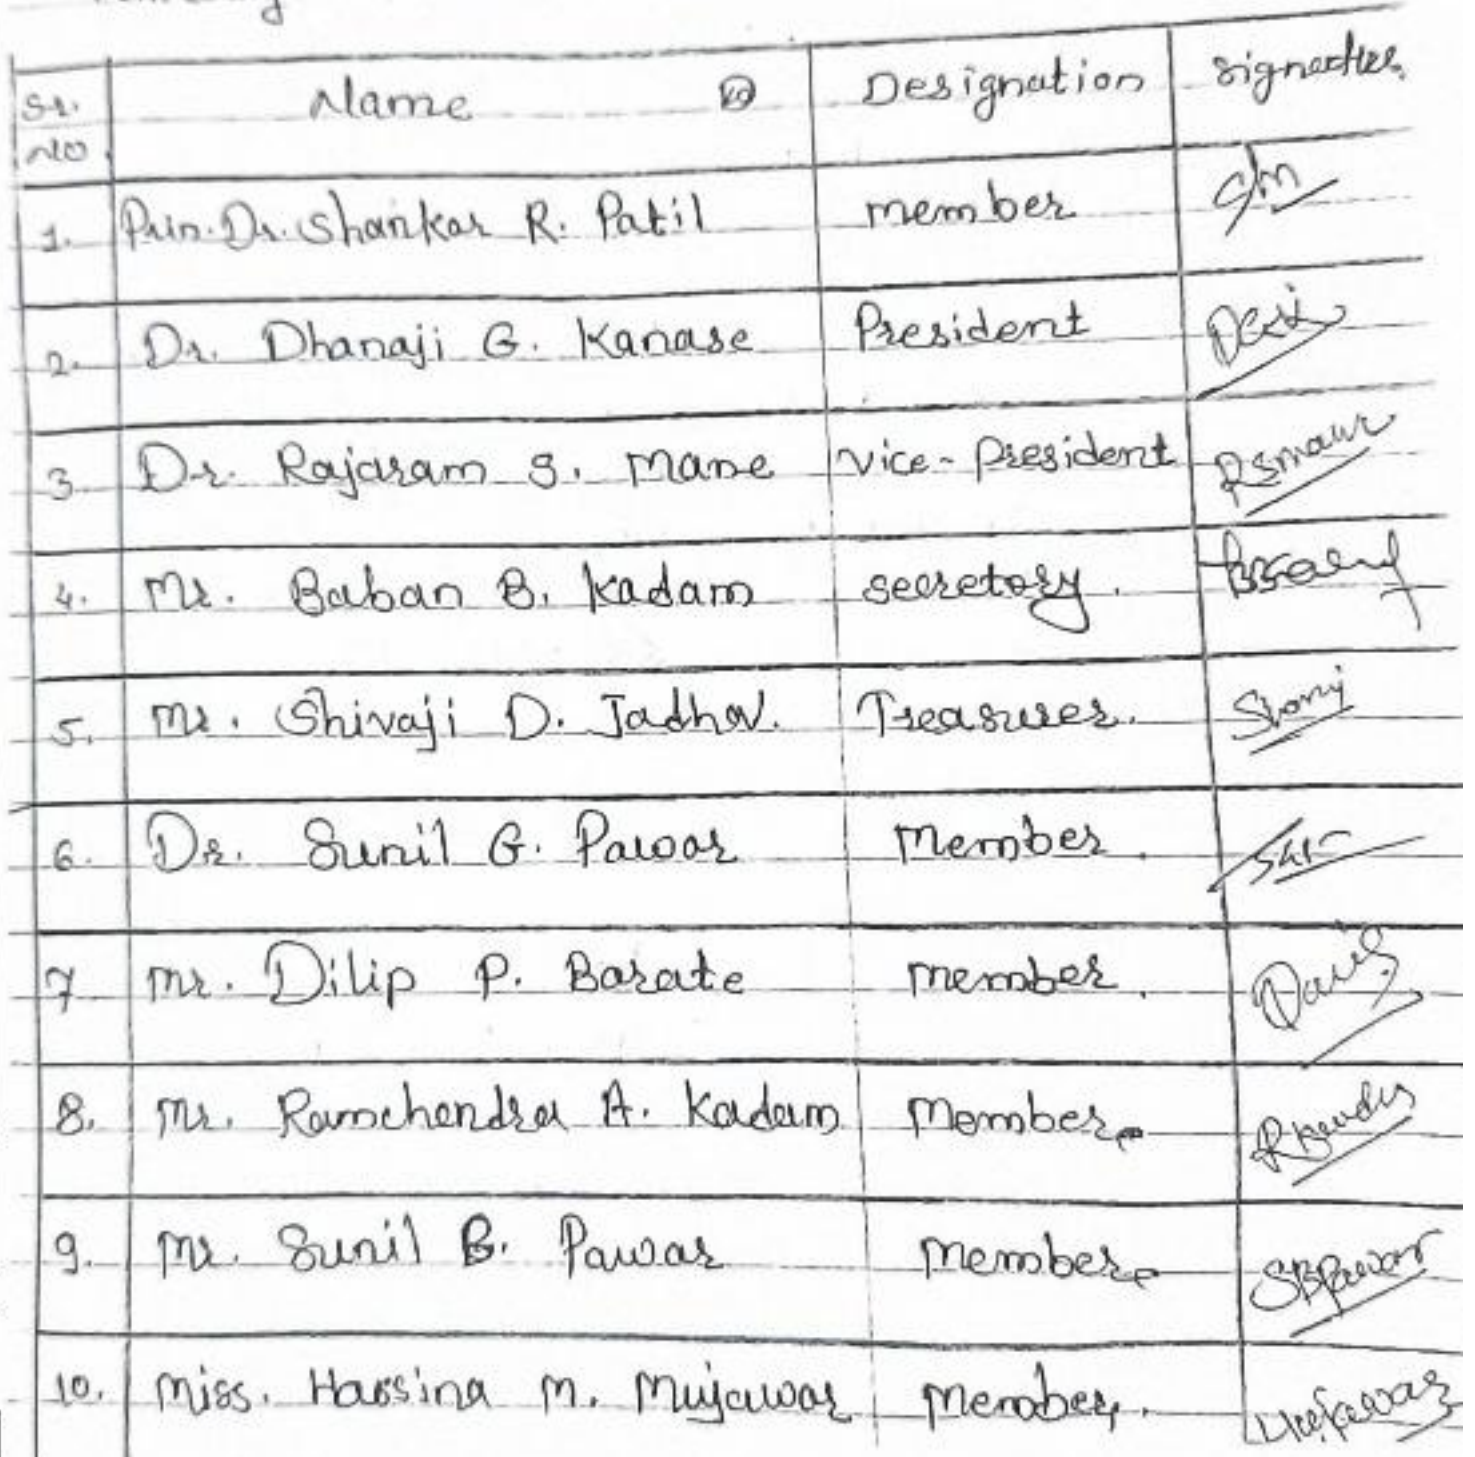 Sr. No Name Designation Signature
1. Prin. Dr. Shankar R. Patil member
2. Dr. Dhanaji G. Kanase President
3. Dr. Rajaram S. Mane Vice-President RSmane
4. Mr. Baban B. Kadam secretory.
5. Mr. Shivaji D. Jadhav. Treasurer.
6. Dr. Sunil G. Pawar Member.
7 Mr. Dilip P. Barate member.
8. Mr. Ramchendra A. Kadam Member.
9. Mr. Sunil B. Pawar Member. SBPawar
10. Miss. Hassina M. Mujawar Member.